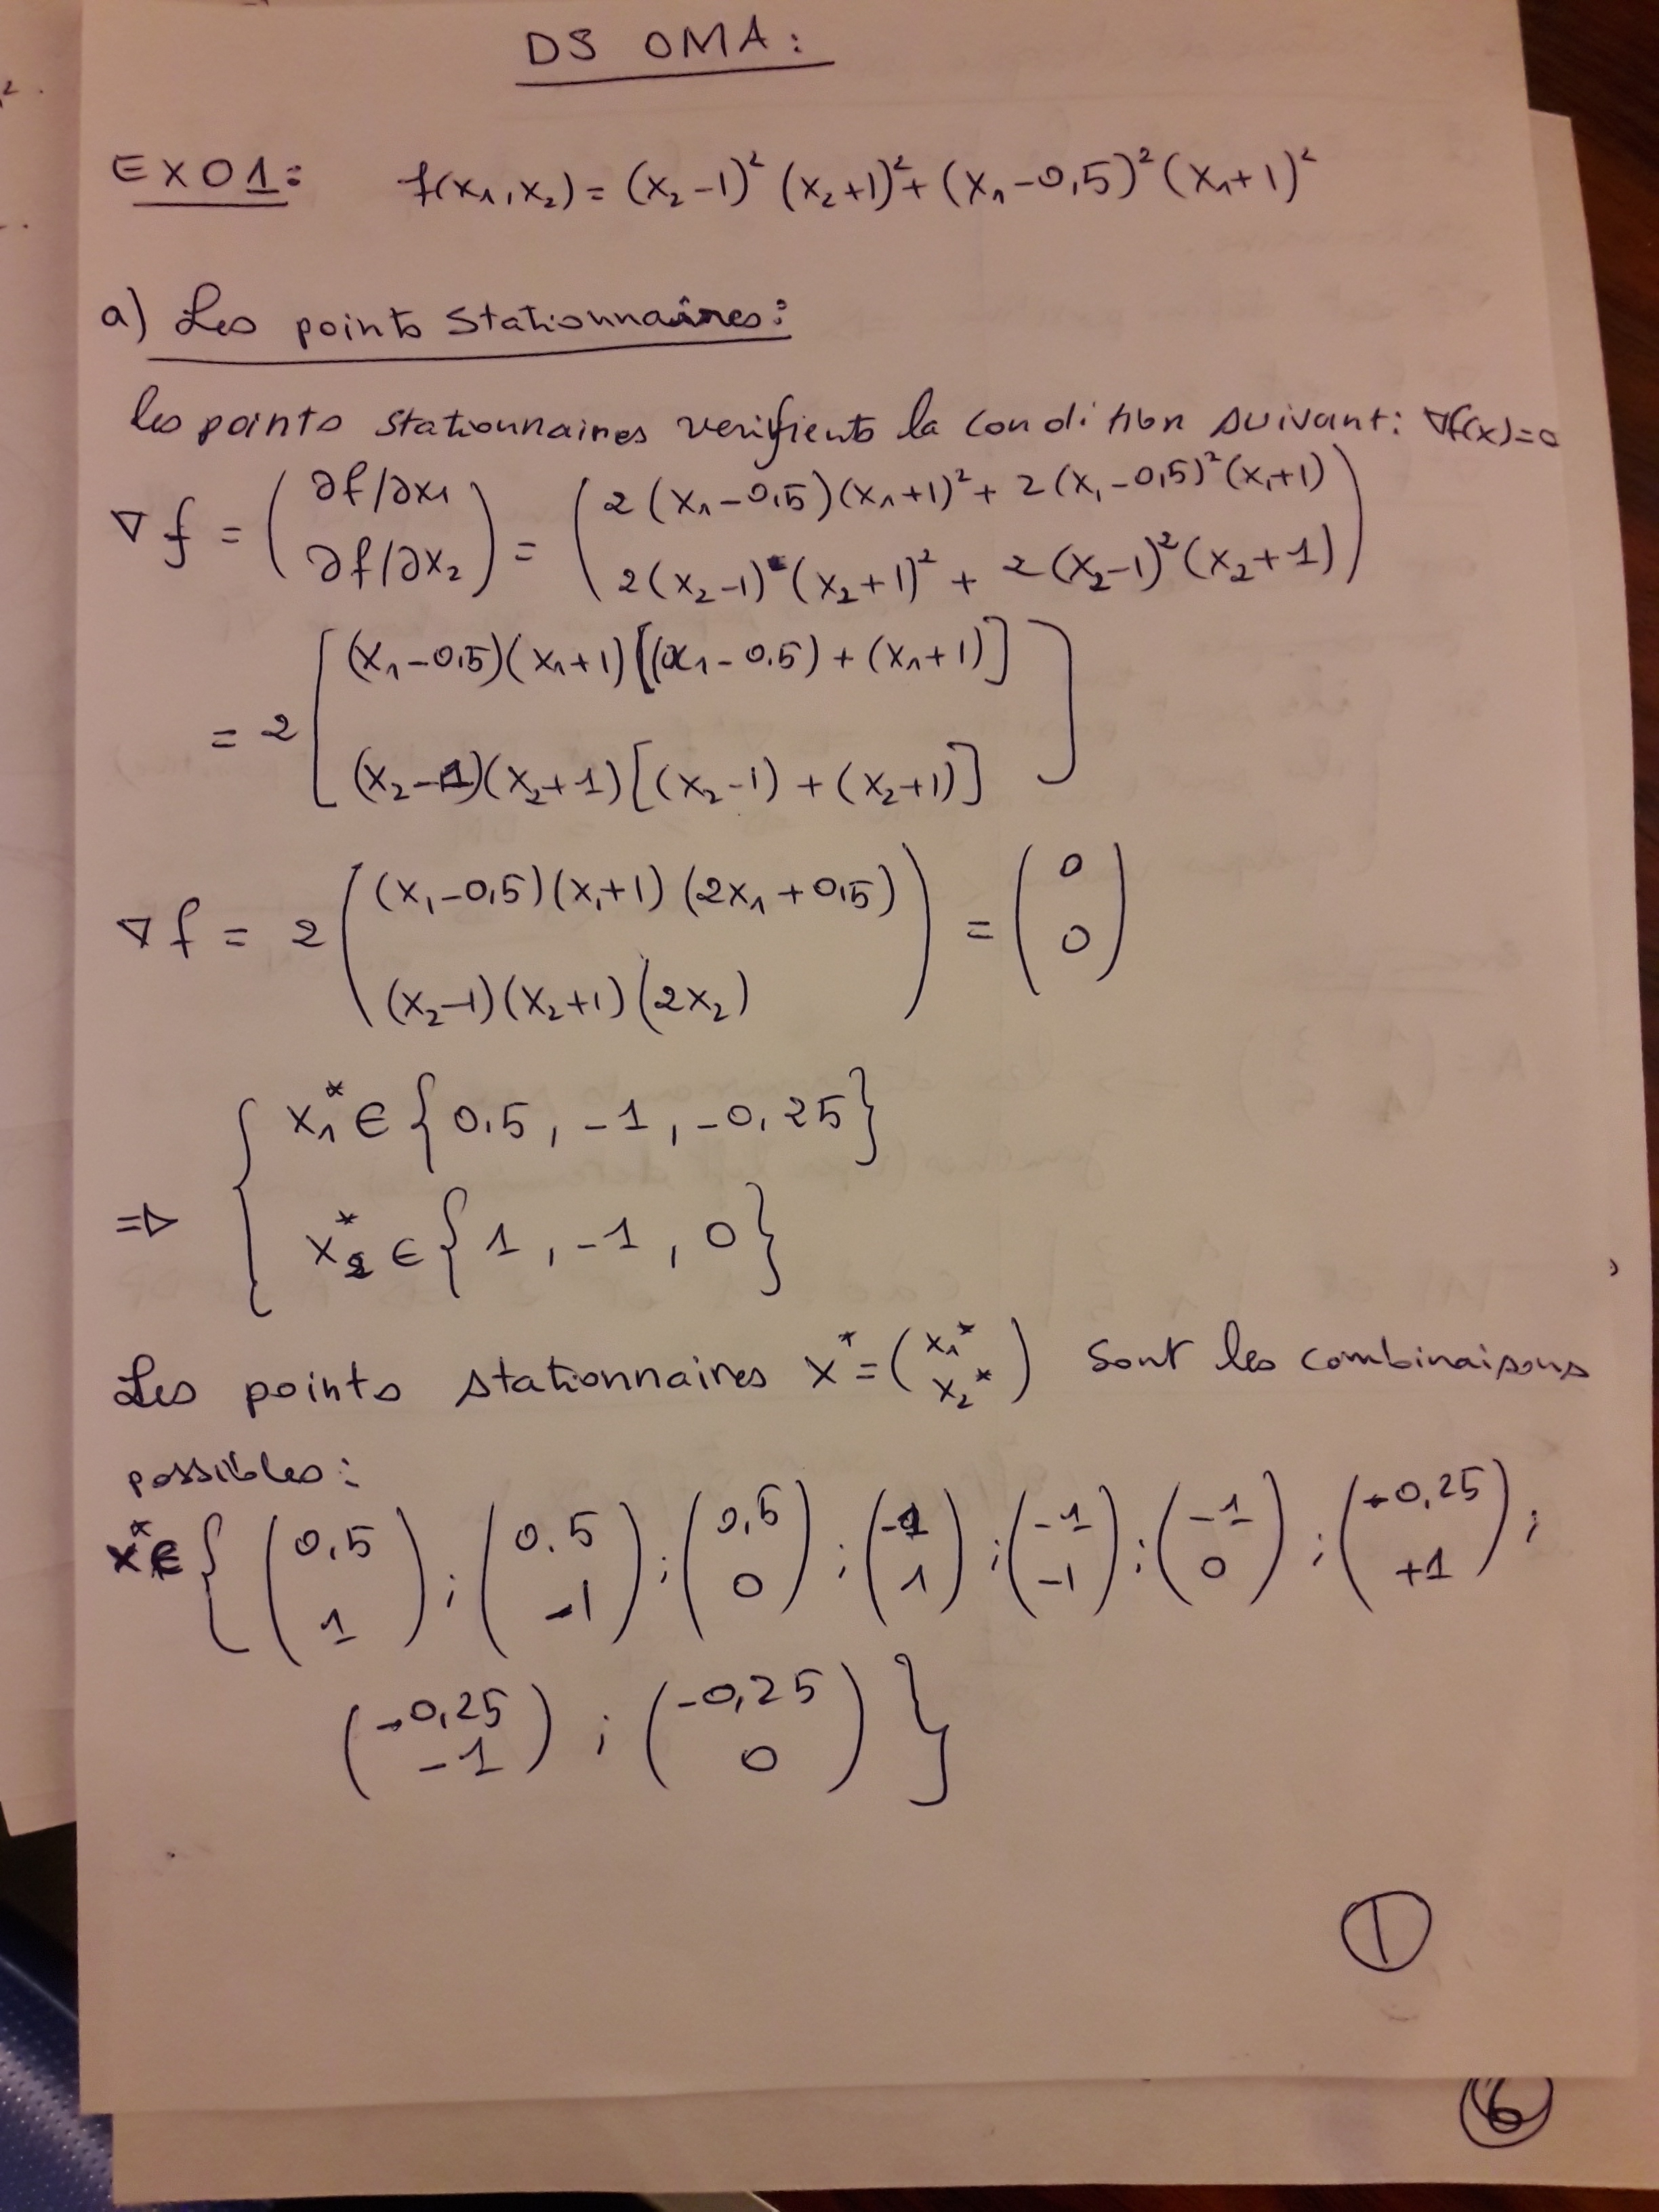 DS OMA :
EXO1: f(x₁,x₂) = (x₂-1)² (x₂+1)² + (x₁-0,5)² (x₁+1)²
a) Les points stationnaires :
les points stationnaires verifients la condition suivant : ∇f(x)=0
∇f = ( ∂f/∂x₁ ; ∂f/∂x₂ ) = ( 2(x₁-0,5)(x₁+1)² + 2(x₁-0,5)²(x₁+1) ; 2(x₂-1)(x₂+1)² + 2(x₂-1)²(x₂+1) )
= 2 [ (x₁-0.5)(x₁+1)[(x₁-0.5)+(x₁+1)] ; (x₂-1)(x₂+1)[(x₂-1)+(x₂+1)] ]
∇f = 2 ( (x₁-0,5)(x₁+1)(2x₁+0,5) ; (x₂-1)(x₂+1)(2x₂) ) = ( 0 ; 0 )
⇒ { x₁* ∈ {0.5, -1, -0,25}
x₂* ∈ {1, -1, 0}
Les points stationnaires x* = ( x₁* ; x₂* ) sont les combinaisons
possibles :
x* ∈ { ( 0,5 ; 1 ) ; ( 0.5 ; -1 ) ; ( 0,5 ; 0 ) ; ( -1 ; 1 ) ; ( -1 ; -1 ) ; ( -1 ; 0 ) ; ( -0,25 ; +1 ) ;
( -0,25 ; -1 ) ; ( -0,25 ; 0 ) }
1
6